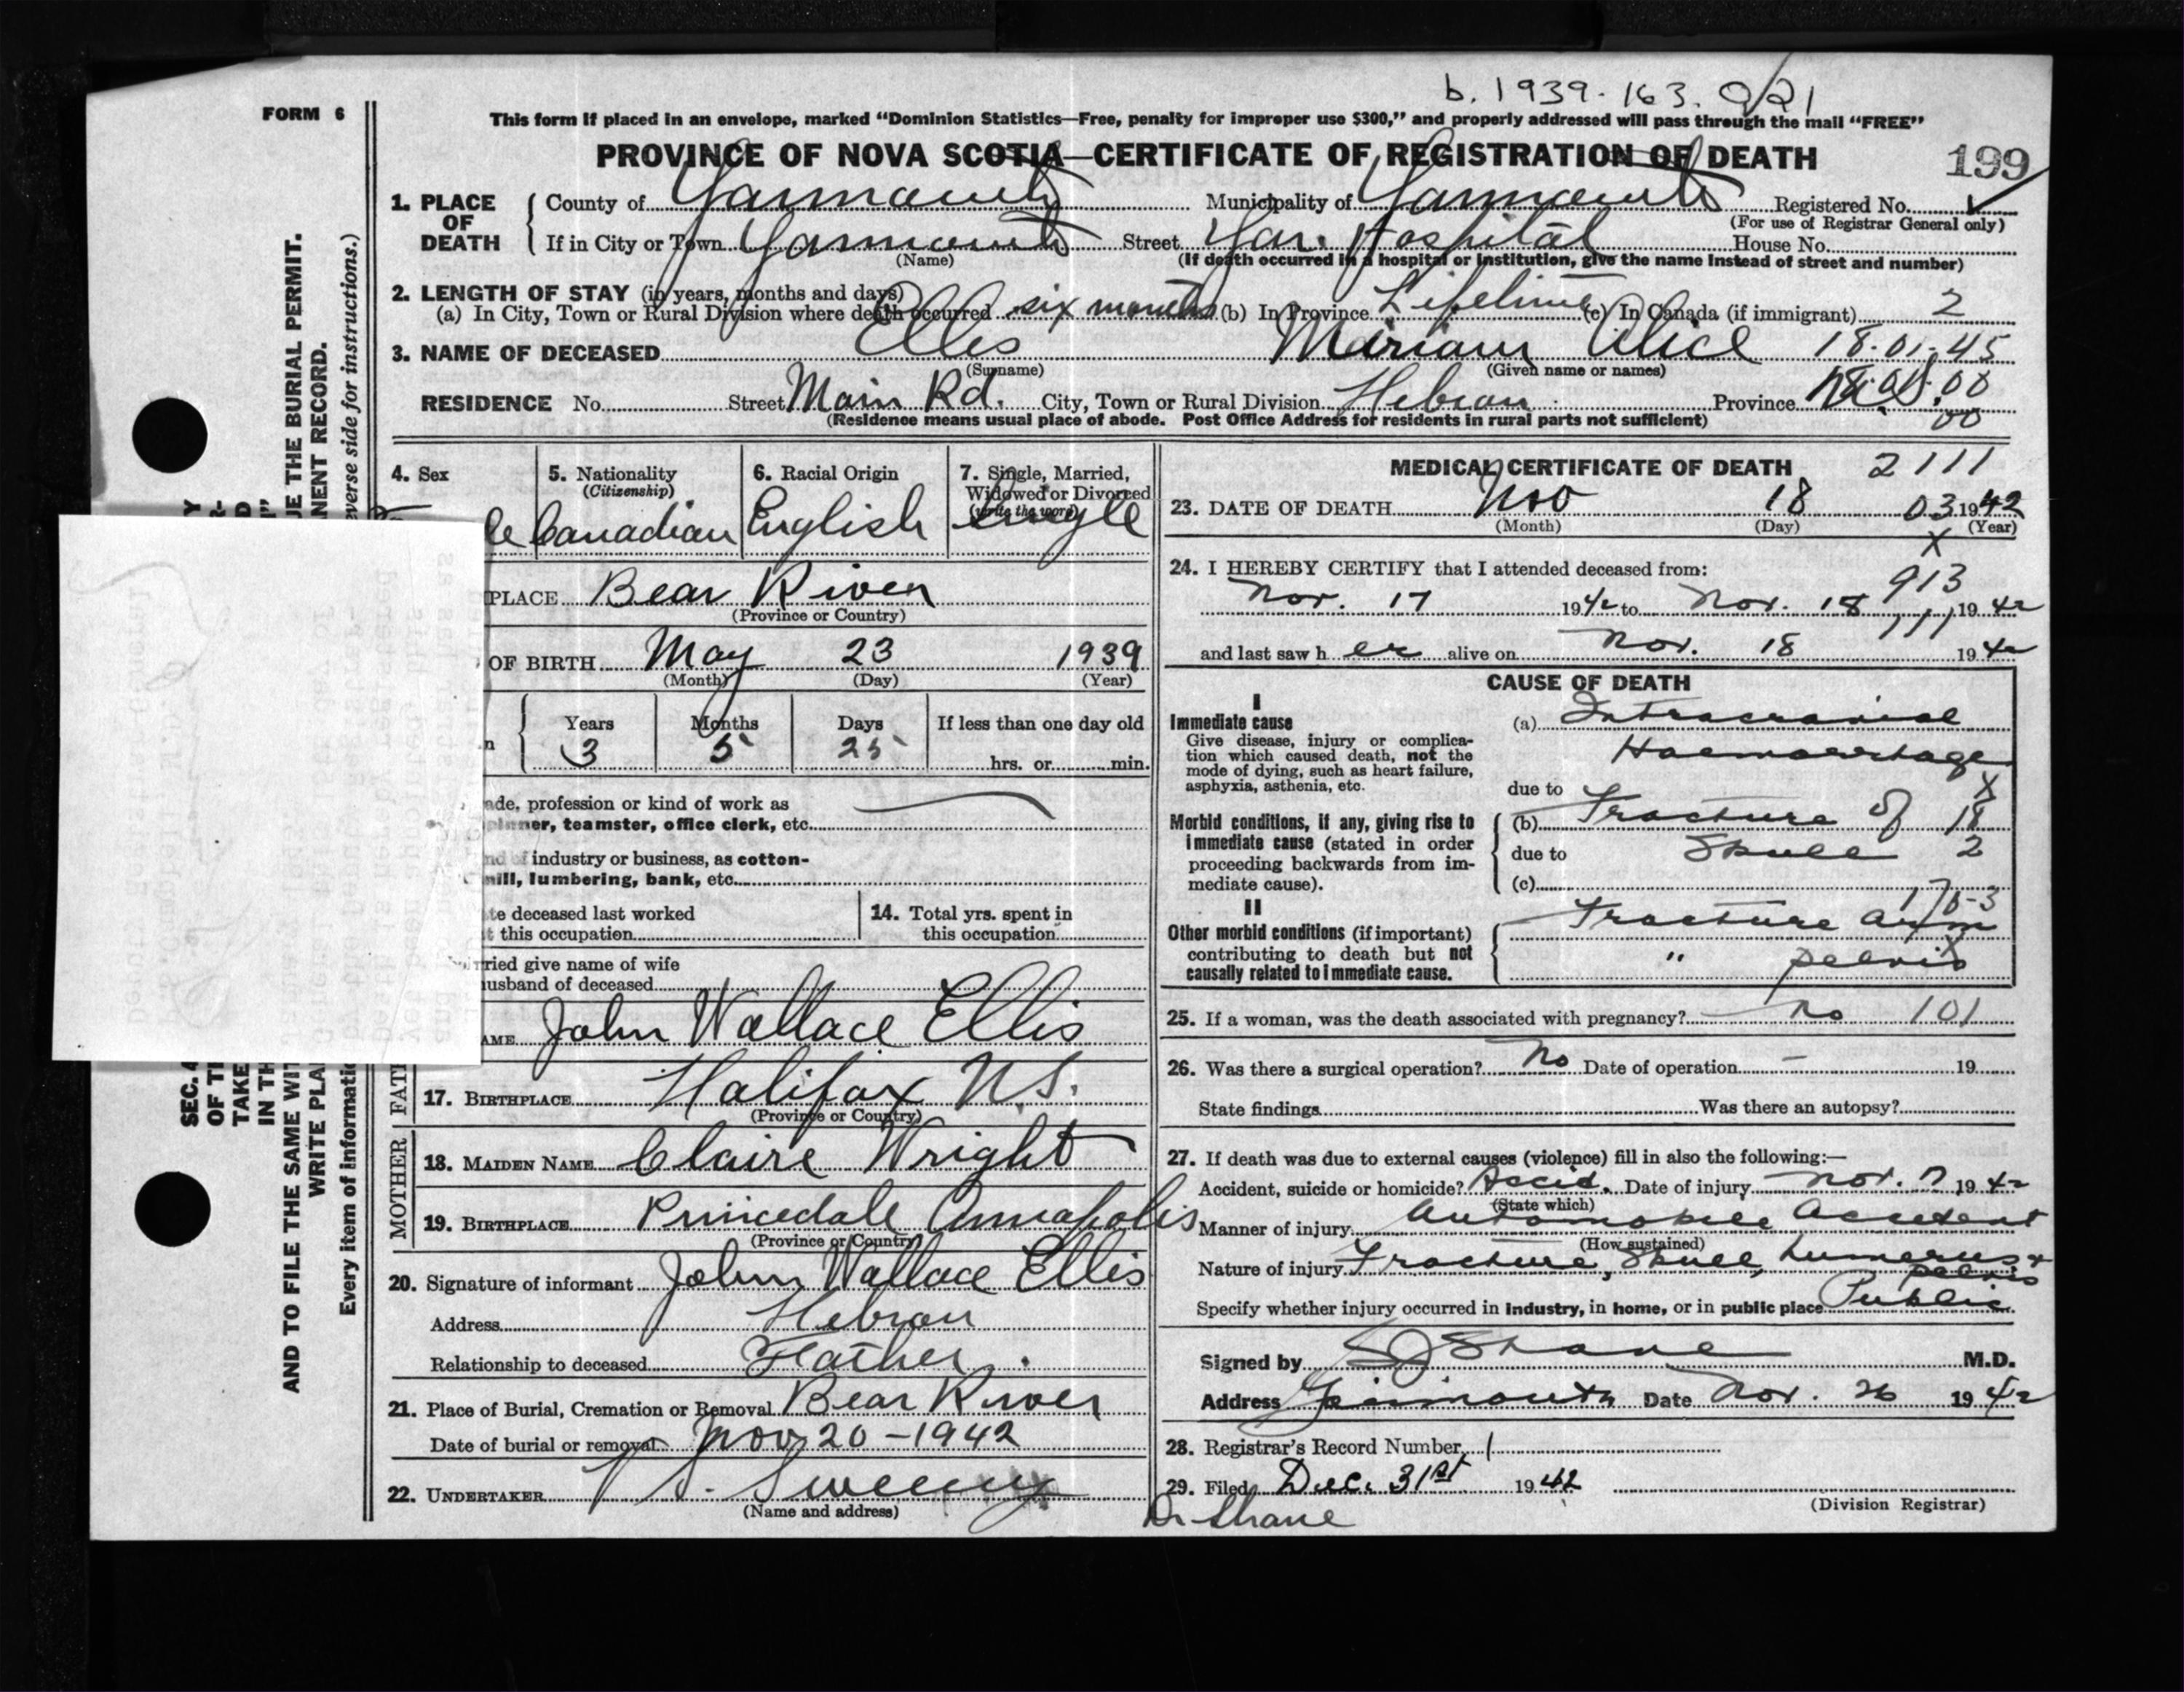 b. 1939. 163. 921
FORM 6
This form if placed in an envelope, marked “Dominion Statistics—Free, penalty for improper use $300,” and properly addressed will pass through the mail “FREE”
PROVINCE OF NOVA SCOTIA—CERTIFICATE OF REGISTRATION OF DEATH 199
1. PLACE OF DEATH County of Yarmouth Municipality of Yarmouth Registered No.
(For use of Registrar General only)
If in City or Town Yarmouth Street Yar. Hospital House No.
(Name) (If death occurred in a hospital or institution, give the name instead of street and number)
2. LENGTH OF STAY (in years, months and days)
(a) In City, Town or Rural Division where death occurred six months (b) In Province Lifetime (c) In Canada (if immigrant) 2
3. NAME OF DECEASED Ellis Miriam Alice 18.01.45
(Surname) (Given name or names)
RESIDENCE No. Street Main Rd. City, Town or Rural Division Hebron Province N.S.
(Residence means usual place of abode. Post Office Address for residents in rural parts not sufficient) 00
4. Sex 5. Nationality 6. Racial Origin 7. Single, Married,
(Citizenship) Widowed or Divorced
(write the word)
le Canadian English Single
PLACE Bear River
(Province or Country)
OF BIRTH May 23 1939
(Month) (Day) (Year)
Years Months Days If less than one day old
3 5 25 hrs. or min.
ade, profession or kind of work as
spinner, teamster, office clerk, etc.
nd of industry or business, as cotton-
mill, lumbering, bank, etc.
te deceased last worked 14. Total yrs. spent in
t this occupation this occupation
rried give name of wife
husband of deceased
AME John Wallace Ellis
FATH
17. BIRTHPLACE Halifax N.S.
(Province or Country)
MOTHER
18. MAIDEN NAME Claire Wright
19. BIRTHPLACE Princedale Annapolis
(Province or Country)
20. Signature of informant John Wallace Ellis
Address Hebron
Relationship to deceased Father.
21. Place of Burial, Cremation or Removal Bear River
Date of burial or removal Nov 20 - 1942
22. UNDERTAKER V. S. Sweeny
(Name and address)
MEDICAL CERTIFICATE OF DEATH 2111
23. DATE OF DEATH Nov 18 03 1942
(Month) (Day) (Year)
X
24. I HEREBY CERTIFY that I attended deceased from:
913
Nov. 17 1942 to Nov. 18 1942
111
and last saw h er alive on Nov. 18 1942
CAUSE OF DEATH
I
Immediate cause (a) Intracranial
Give disease, injury or complica-
tion which caused death, not the
mode of dying, such as heart failure,
asphyxia, asthenia, etc.
Haemorrhage
due to X
Morbid conditions, if any, giving rise to
immediate cause (stated in order
proceeding backwards from im-
mediate cause).
(b) Fracture of 18
due to Skull 2
(c)
170-3
II
Other morbid conditions (if important)
contributing to death but not
causally related to immediate cause.
Fracture arm
" pelvis
25. If a woman, was the death associated with pregnancy? No 101
26. Was there a surgical operation? No Date of operation – 19
State findings Was there an autopsy?
27. If death was due to external causes (violence) fill in also the following:—
Accident, suicide or homicide? Accid. Date of injury Nov. 1942
(State which)
Manner of injury Automobile Accident
(How sustained)
Nature of injury Fracture, Skull, humerus + pelvis
Specify whether injury occurred in industry, in home, or in public place Public
Signed by Shane M.D.
Address Yarmouth Date Nov. 26 1942
28. Registrar's Record Number 1
29. Filed Dec. 31st 1942
(Division Registrar)
Dr Shane
E THE BURIAL PERMIT.
NENT RECORD.
everse side for instructions.)
SEC. 4
OF TH
TAKE
IN TH
AND TO FILE THE SAME WIT
WRITE PLA
Every item of informatic